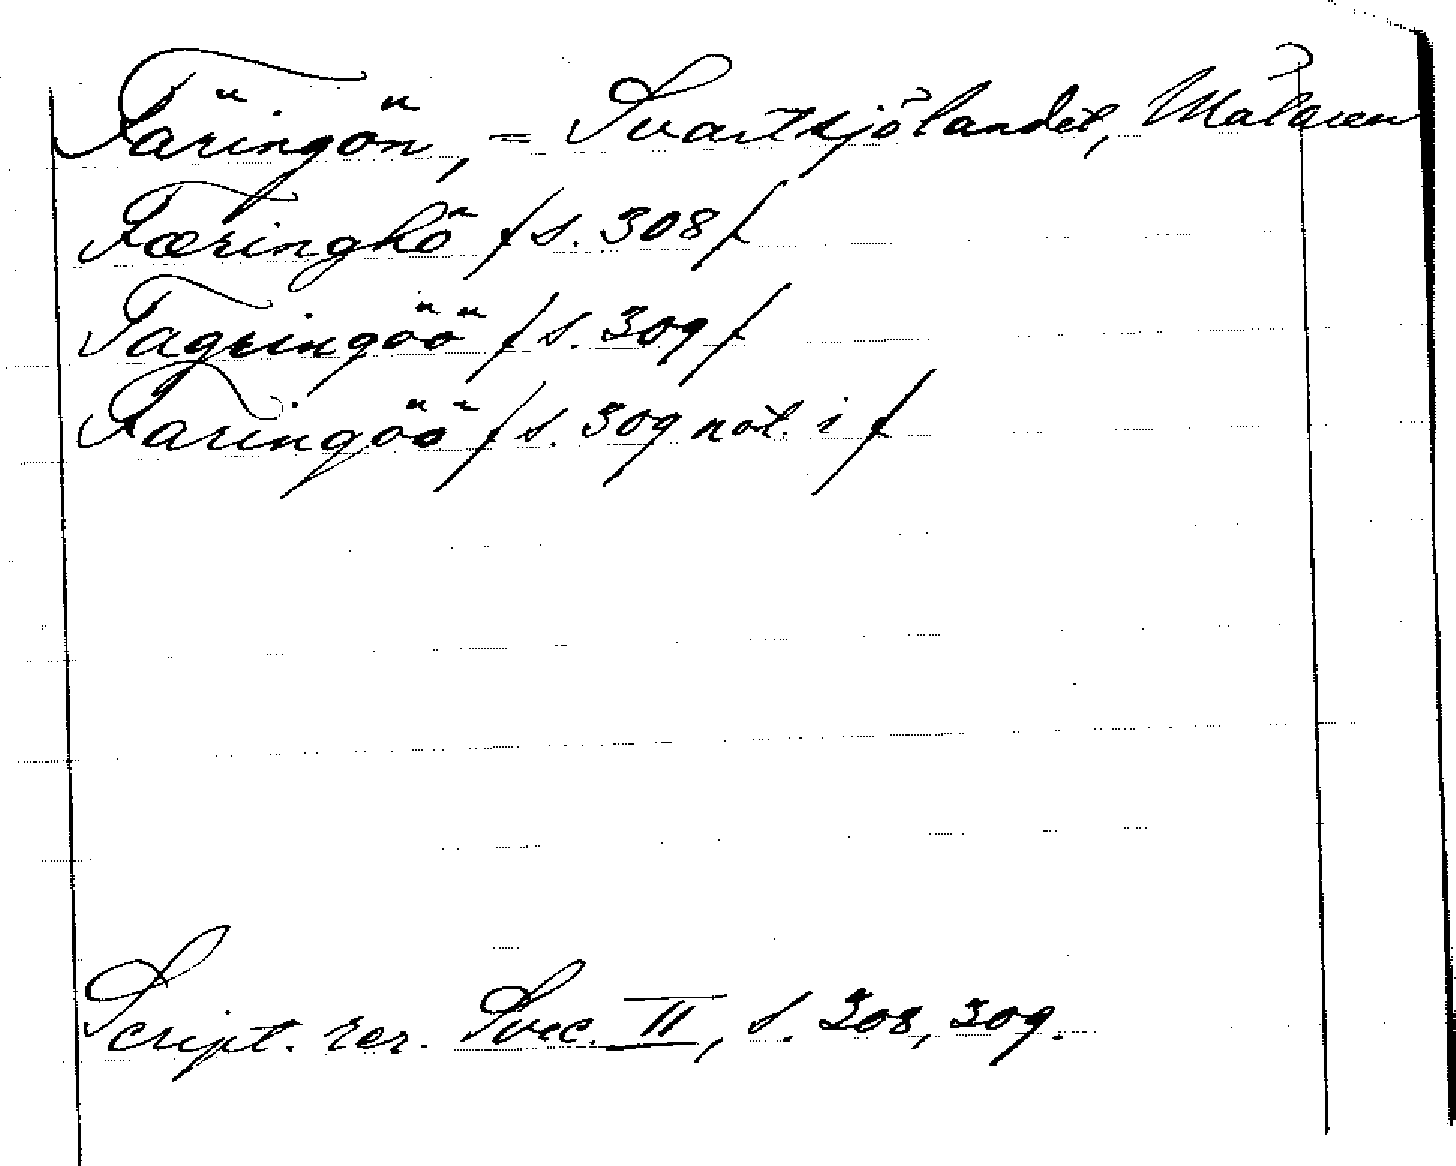 Färingön, = Svartsjölandet, Mälaren
Færinghö /s. 308/
Fagringöö /s. 309/
Faringöö /s. 309 not. i/
Script. rer. Svec. II, s. 308, 309.